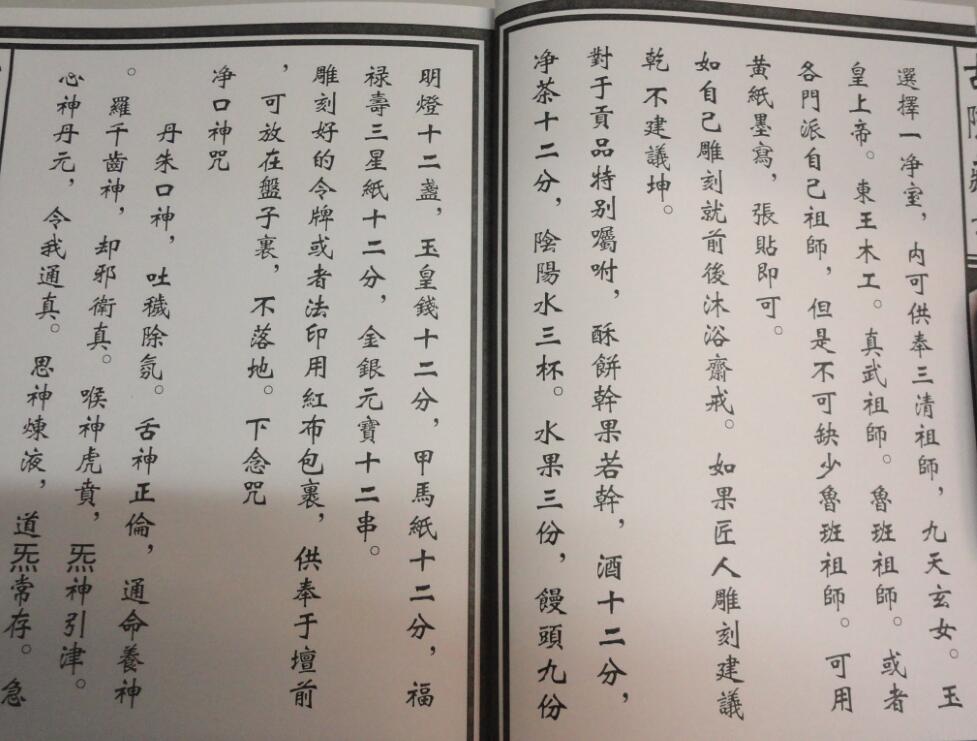 選擇一净室,内可供奉三清祖師,九天玄女。玉
皇上帝。東王木工。真武祖師。魯班祖師。或者
各門派自己祖師,但是不可缺少魯班祖師。可用
黄紙墨寫,張貼即可。
如自己雕刻就前後沐浴齋戒。如果匠人雕刻建議
乾不建議坤。
對于貢品特别囑咐,酥餅幹果若幹,酒十二分,
净茶十二分,陰陽水三杯。水果三份,饅頭九份
明燈十二盞,玉皇錢十二分,甲馬紙十二分,福
禄壽三星紙十二分,金銀元寶十二串。
雕刻好的令牌或者法印用紅布包裹,供奉于壇前
,可放在盤子裏,不落地。下念咒
净口神咒
丹朱口神,吐穢除氛。舌神正倫,通命養神
。羅千齒神,却邪衛真。喉神虎賁,炁神引津。
心神丹元,令我通真。思神煉液,道炁常存。急